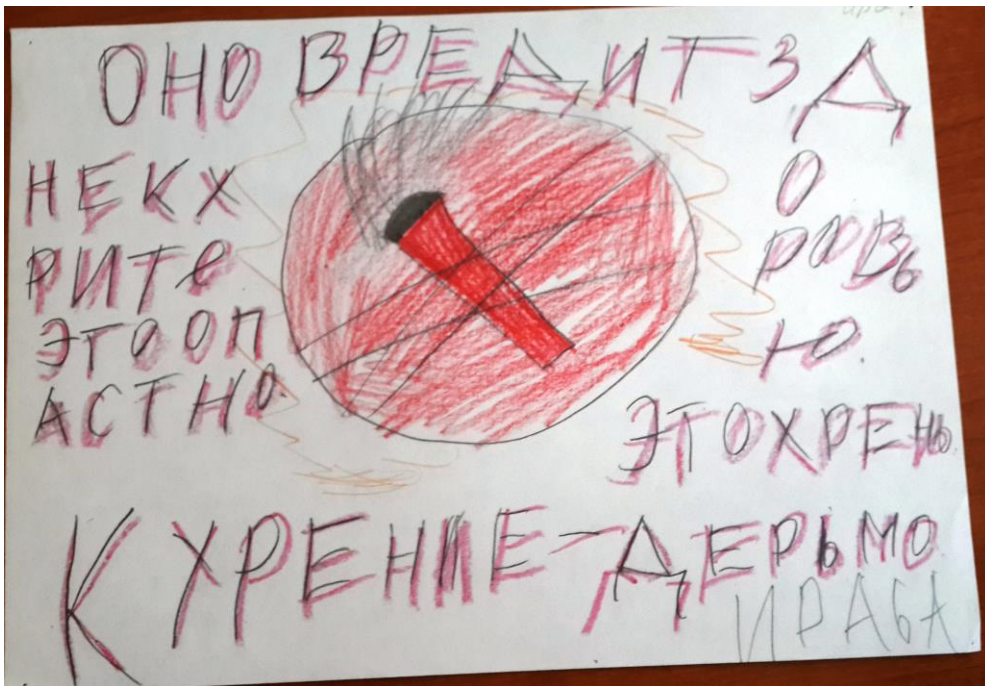 ОНО ВРЕДИТ ЗД
О
РОВЬ
Ю.
НЕКХ
РИТЕ
ЭТООП
АСТНО.
ЭТОХРЕНЬ.
КХРЕНИЕ-ДЕРЬМО
ИРАБА